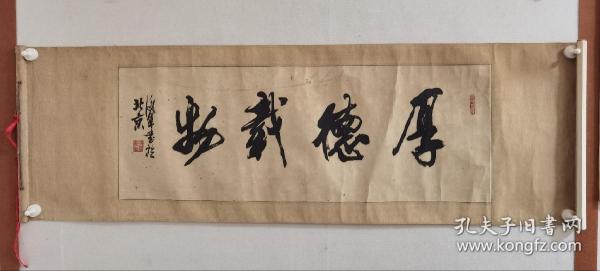 厚德載物
書於
北京
孔夫子旧书网
www.kongfz.com